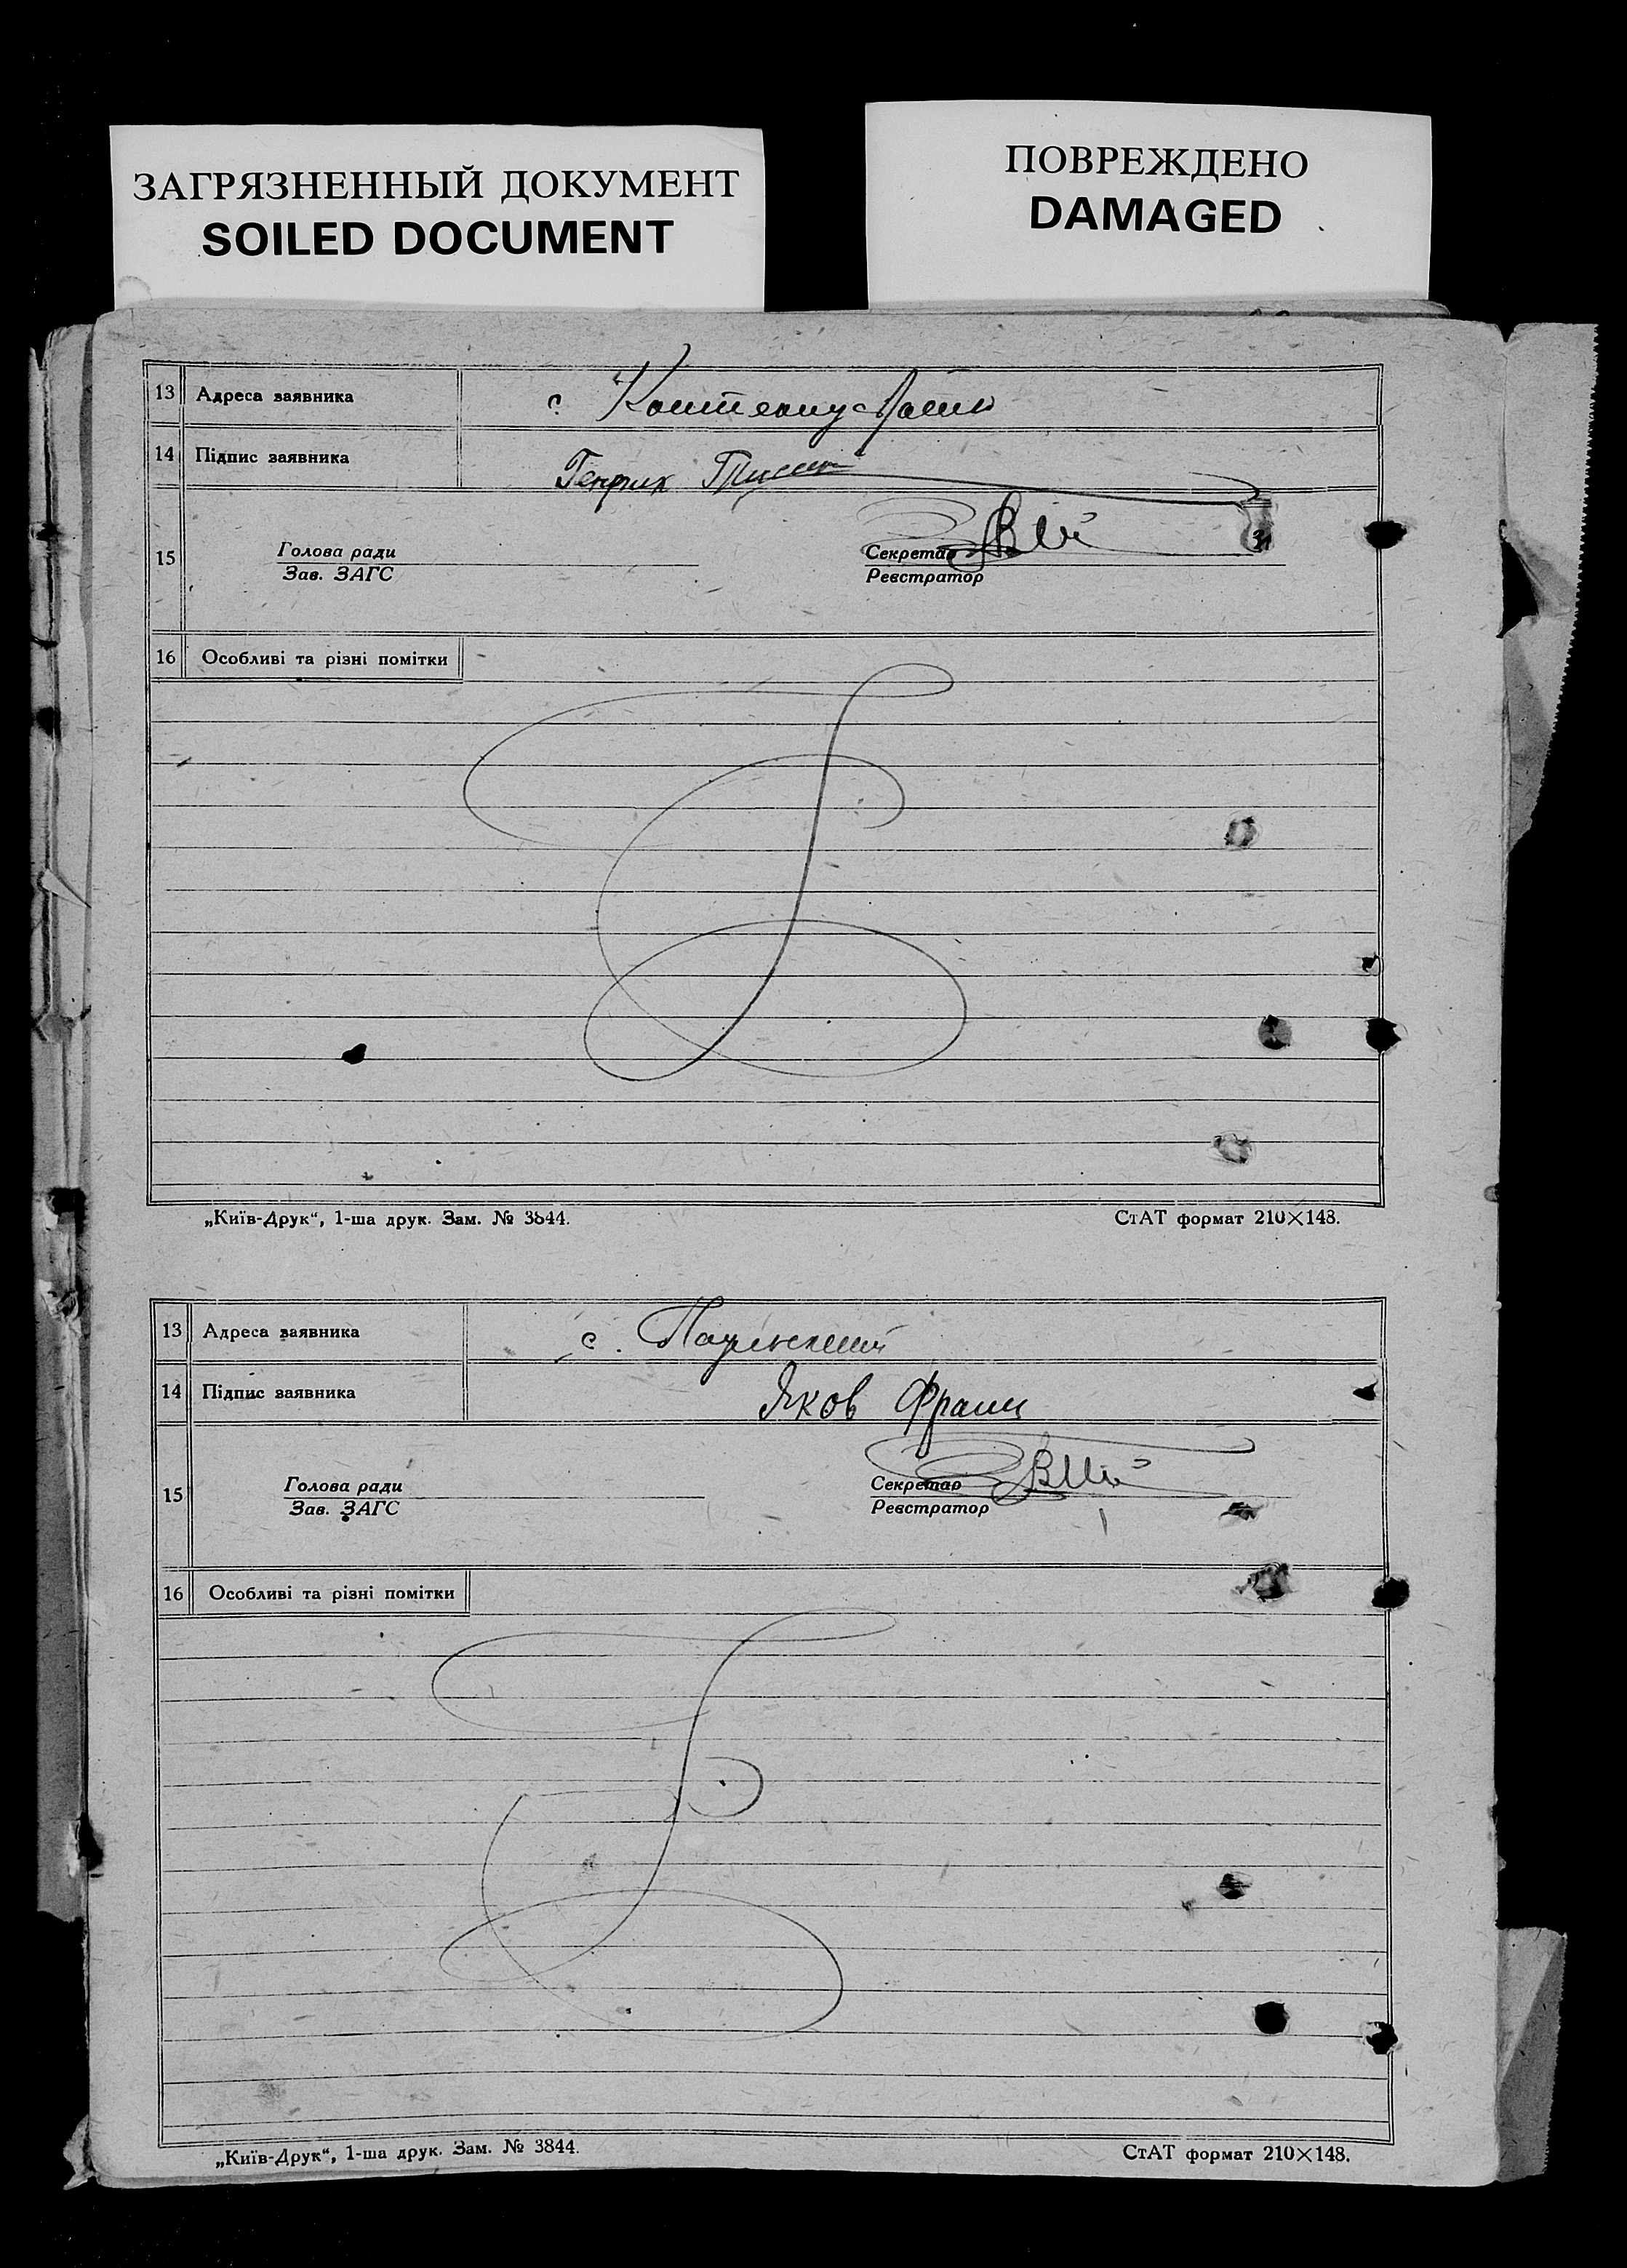 ЗАГРЯЗНЕННЫЙ ДОКУМЕНТ
SOILED DOCUMENT
ПОВРЕЖДЕНО
DAMAGED
13 Адреса заявника с.
14 Підпис заявника Генрик
15 Голова ради Секретар
Зав. ЗАГС Реєстратор
16 Особливі та різні помітки
„Київ-Друк“, 1-ша друк. Зам. № 3844. СтАТ формат 210×148.
13 Адреса заявника с.
14 Підпис заявника Яков Франц
15 Голова ради Секретар
Зав. ЗАГС Реєстратор
16 Особливі та різні помітки
„Київ-Друк“, 1-ша друк. Зам. № 3844. СтАТ формат 210×148.